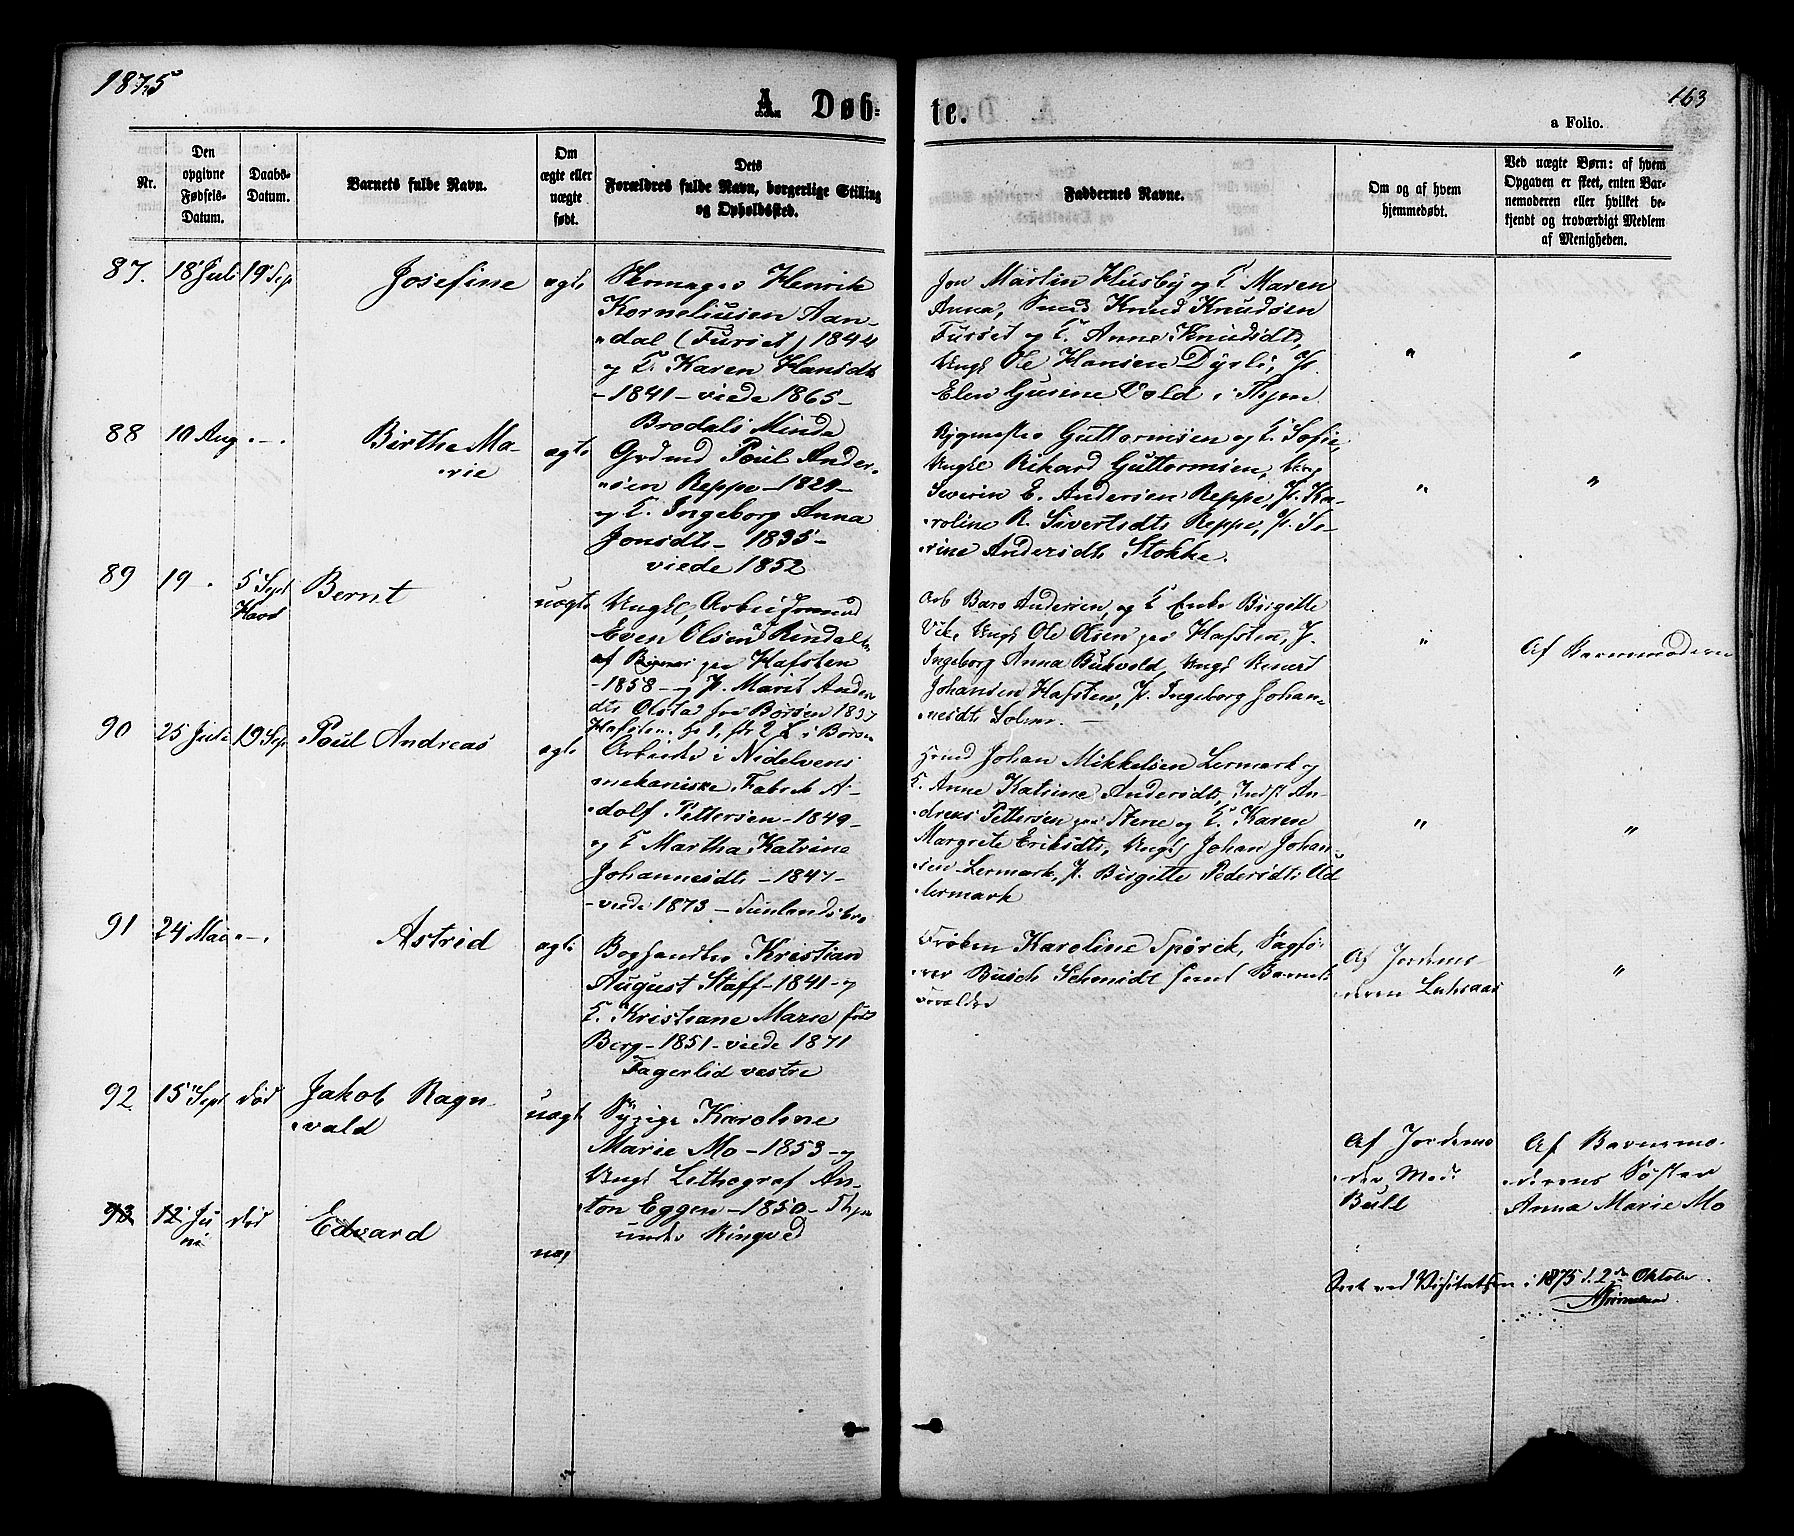 1875
A. Døb-
te.
163
a Folio.
Nr.
Den
opgivne
Fødsels-
Datum.
Daabs-
Datum.
Barnets fulde Navn.
Om
ægte eller
uægte
født.
Dets
Forældres fulde Navn, borgerlige Stilling
og Opholdssted.
Faddernes Navne.
Om og af hvem
hjemmedøbt.
Ved uægte Børn: af hvem
Opgaven er skeet, enten Bar-
nemoderen eller hvilket be-
kjendt og troværdigt Medlem
af Menigheden.
87.
18 Juli
19 Sep
Josefine
ægte
Skomager Henrik
Korneliusen Aan-
dal (Furset) 1844
og H. Karen Hansdt
- 1841 - viede 1865 -
Brodals Minde
Jon Martin Husby og H. Maren
Anna, Smed Knud Knudsen
Furset og H. Anne Knudsdt,
Ungk Ole Hansen Dyrli, P.
Elen Gusine Vold i Thjem
"
"
88
10 Aug
- " -
Birthe Ma-
rie
ægte
Grdmd Poul Ander-
sen Reppe - 1829 -
og H. Ingeborg Anna
Jonsdt - 1835 -
viede 1852
Guttormsen og H. Sofie,
Ungk Rikard Guttormsen,
Severin E. Andersen Reppe, P. Ka-
roline R. Sivertsdt Reppe, P. Se-
rine Andersdt Stokke.
"
"
89
19 "
5 Sept
Bernt
uægte
Ungk, Arbeidsmand
Even Olsen Rindal
af paa Hafsten
- 1858 - og P. Marit Anders
dt Olstad fra Børsen 1837
Hafsten. i Børsen
Arb Baro Andersen, og H Enke Birgitte
Vik, Ungk Ole Olsen paa Hafsten, P.
Ingeborg Anna Bukvold, Ungk
Johansen Hafsten, P. Ingeborg Johan-
nesdt
"
Af Barnemoderen
90
25 Juli
19 Sep
Poul Andreas
ægte
Arbeider i Nidelvens
mekaniske Fabrik A-
dolf Pettersen - 1849 -
og H Martha Katrine
Johannesdt - 1847 -
- viede 1873 -
Johan Mikkelsen Lermark og
H. Anne Katrine Andersdt, Indst An-
dreas Pettersen paa Stene og H. Karen
Margrete Eriksdt, Ungk Johan Johan-
sen Lermark, P. Birgitte Pedersdt
lermark
"
"
91
24 Mai
- " -
Astrid
ægte
Boghandler Kristian
August Staff - 1841 - og
H. Kristiane Marie født
Berg - 1851 - viede 1871
Fagerlid vestre
Frøken Karoline Spørck, Sagfø-
rer Busch Schmidt samt Barnets
Forældre
Af Jordemo
deren
"
92
15 Sept
død
Jakob Ragn-
vald
uægte
Pige Karoline
Marie Mo - 1853 - og
Ungk Lithograf An-
ton Eggen - 1850 - Thjem
under Ringved
Af Jordemo
der Mad.
Bull
Af Barnemo-
derens Søster
Anna Marie Mo
93
12 Ju
ni
død
Edvard
uæg
Seet ved Visitatsen i 1875 d. 2den Oktober.